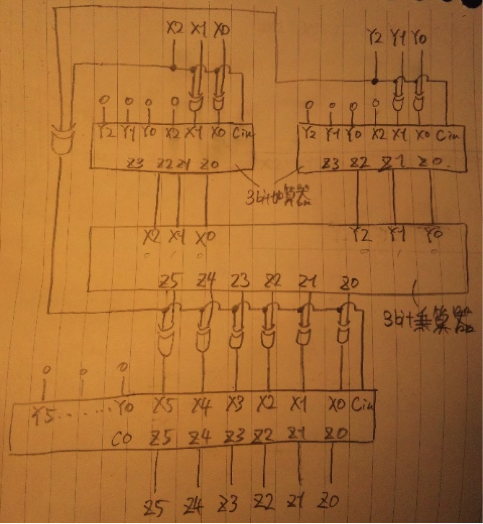 X2 X1 X0
Y2 Y1 Y0
0 0 0 0
0 0 0 0
Y2 Y1 Y0 X2 X1 X0 Cin
Y2 Y1 Y0 X2 X1 X0 Cin
Z3 Z2 Z1 Z0
Z3 Z2 Z1 Z0
3bit加算器
X2 X1 X0
Y2 Y1 Y0
Z5 Z4 Z3 Z2 Z1 Z0
3bit乗算器
0 0 0
Y5 ...... Y0 X5 X4 X3 X2 X1 X0 Cin
C0 Z5 Z4 Z3 Z2 Z1 Z0
Z5 Z4 Z3 Z2 Z1 Z0